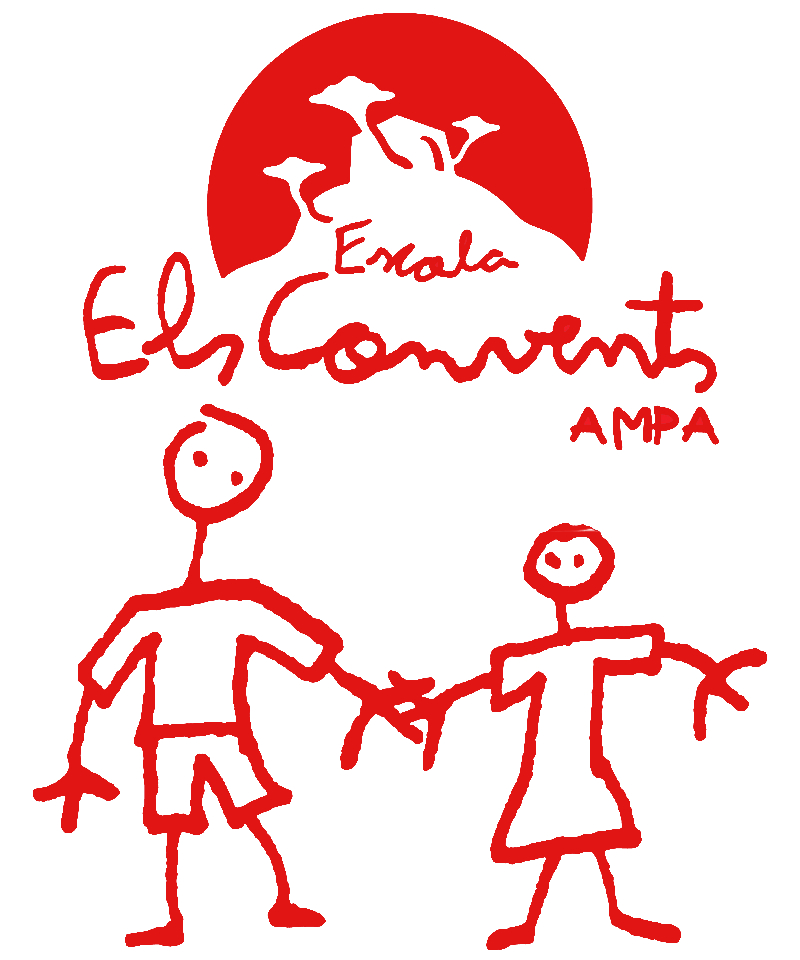 Escola
Els Convents
AMPA